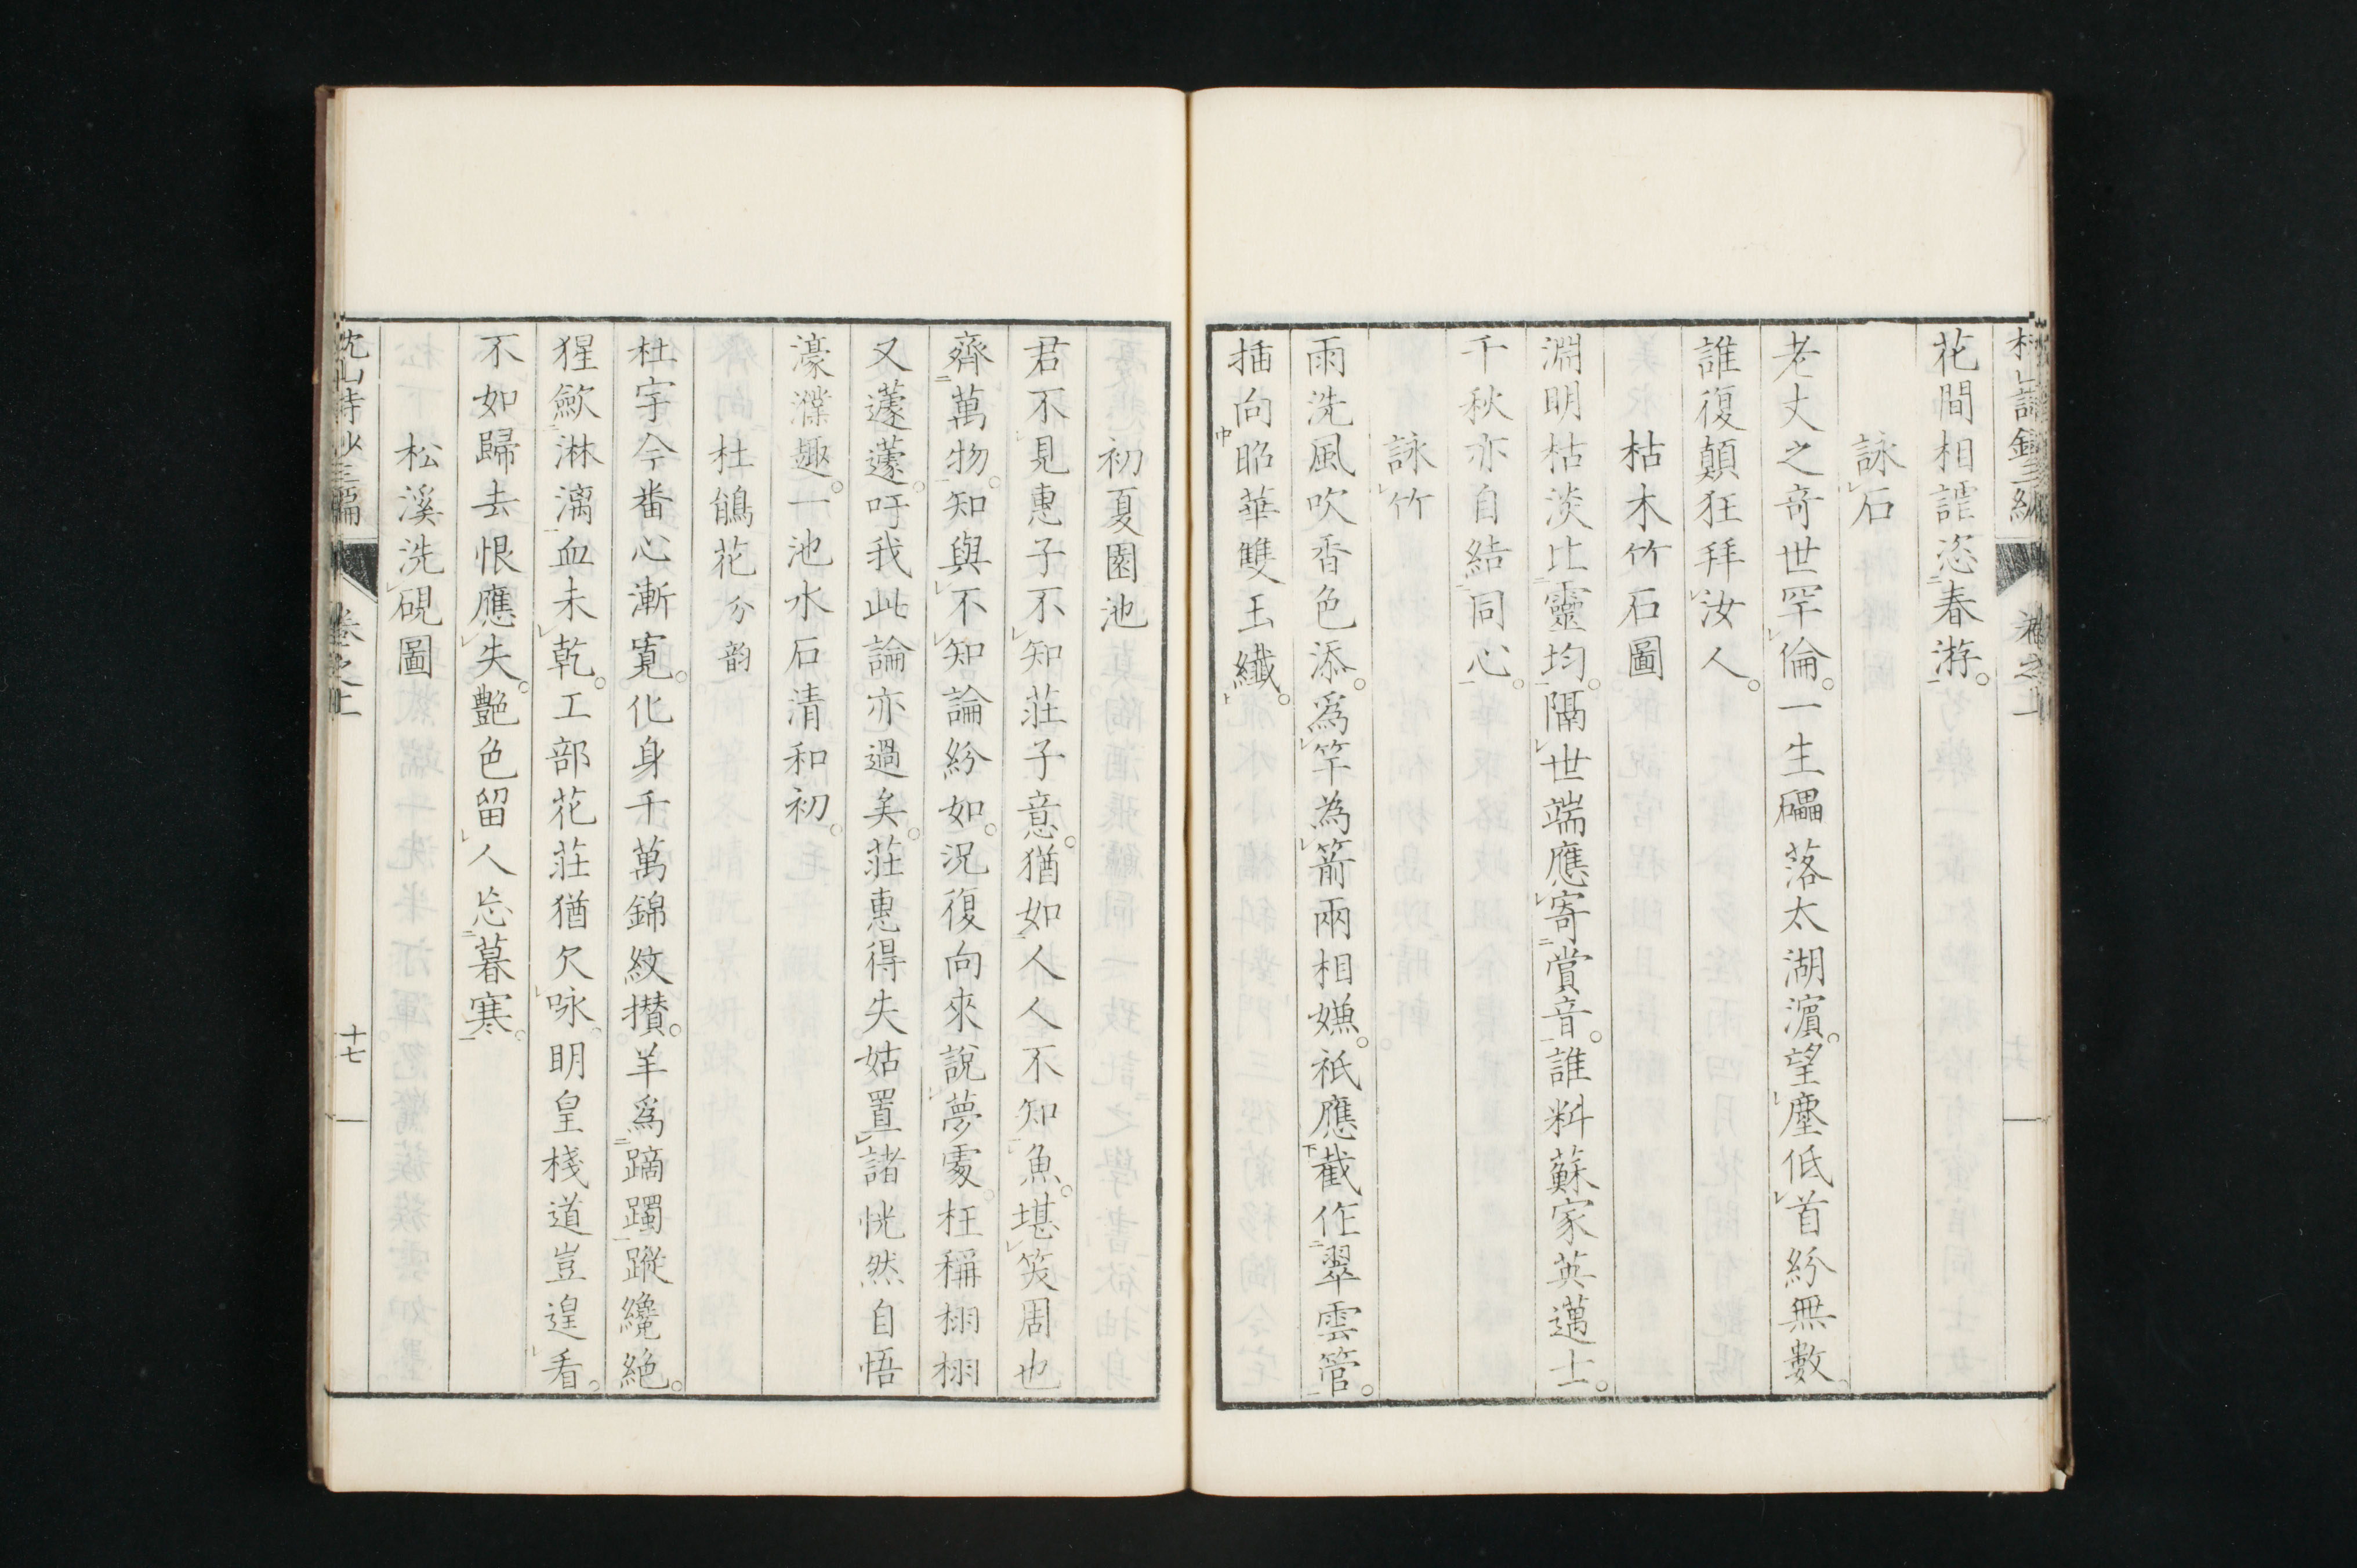 花間相謔恣春游。
詠石
老丈之奇世罕倫。一生礧落太湖濵。望塵低首紛無數
誰復顛狂拜汝人。
枯木竹石圖
淵明枯淡比靈均。隔世端應寄賞音。誰料蘇家英邁士。
千秋亦自結同心。
詠竹
雨洗風吹香色添。爲竿為箭兩相嫌。祇應截作翠雲管。
插向昭華雙玉纖。
初夏園池
君不見惠子不知莊子意。猶如人人不知魚。堪笑周也
齊萬物。知與不知論紛如。況復向來說夢處。枉稱栩栩
又蘧蘧。吁我此論亦過矣。莊惠得失姑置諸恍然自悟
濠濮趣。一池水石清和初。
杜鵑花分韵
杜宇今番心漸寬。化身千萬錦紋攢。羊爲蹢躅蹤纔絶。
猩歙淋漓血未乾。工部花莊猶欠咏。明皇棧道豈遑看。
不如歸去恨應失。艷色留人忘暮寒。
松溪洗硯圖
枕山詩鈔三編 卷之上 十七